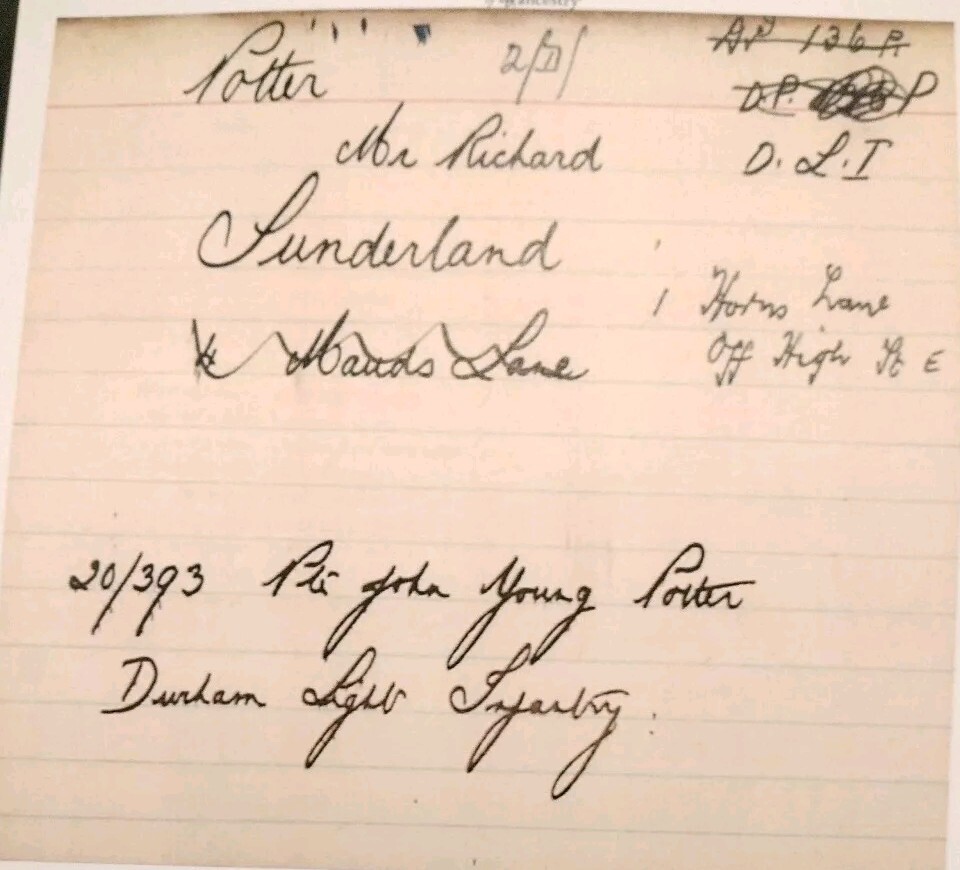 Potter 2/II/ D.P 136 P.
D.P. P
Mr Richard D. L. I
Sunderland
1 Horns Lane
4 Mauds Lane Off High St E
20/393 Pte John Young Potter
Durham Light Infantry.